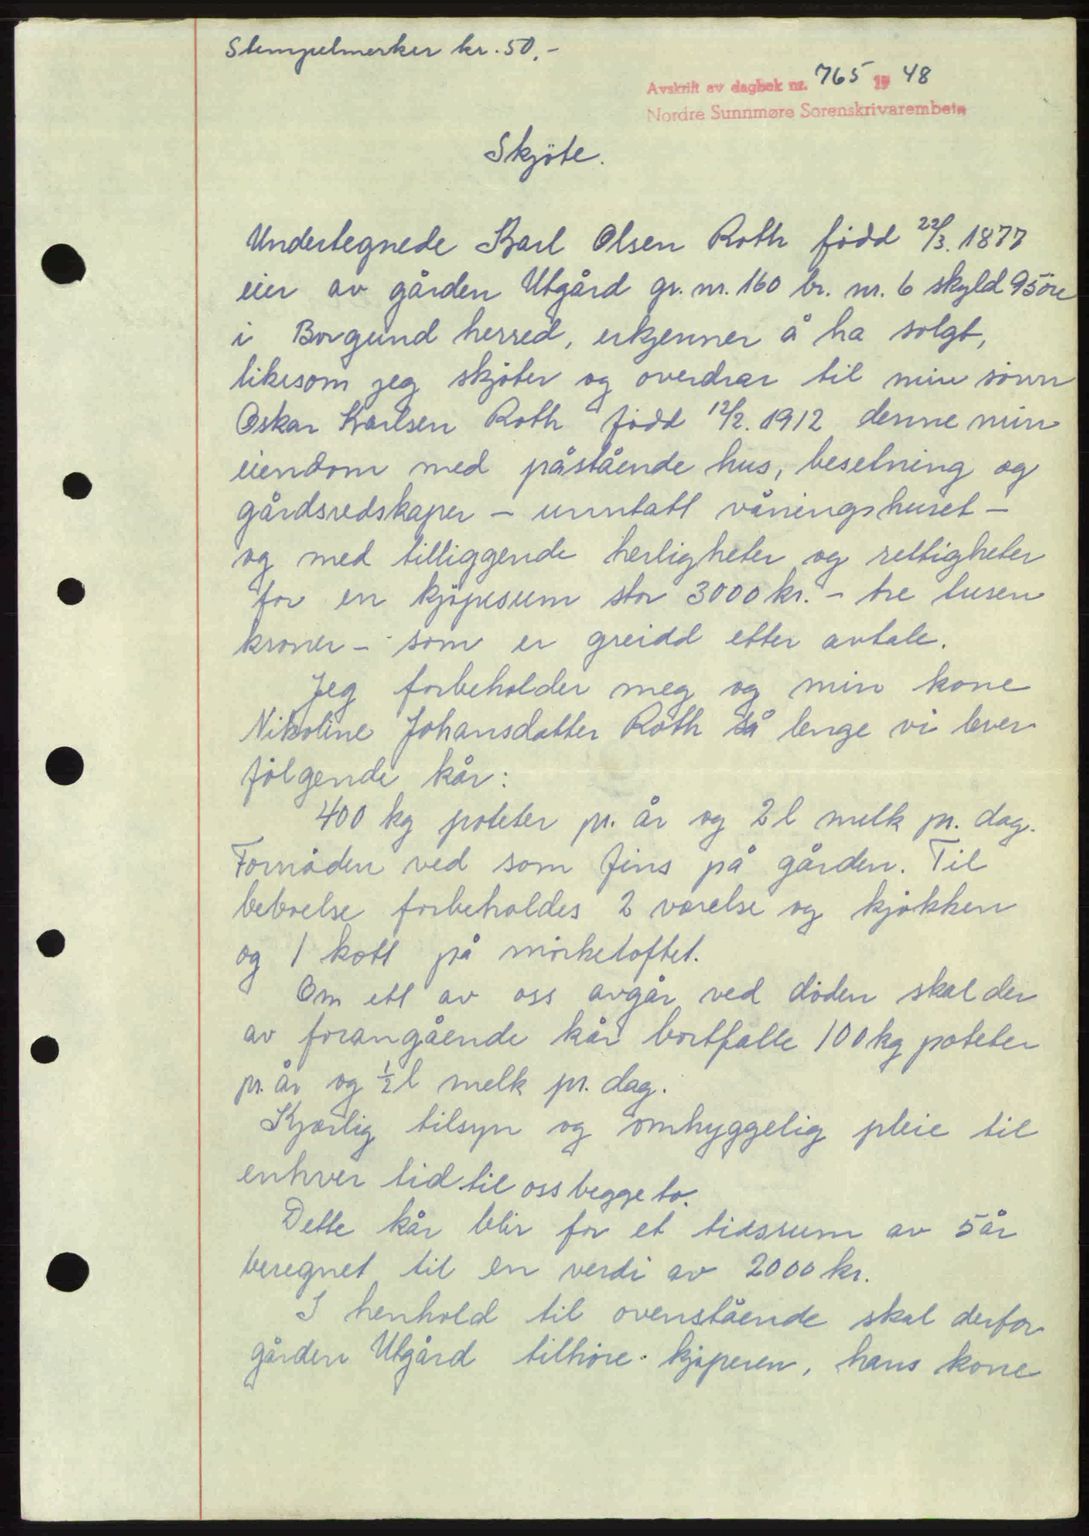 Stempelmerker kr. 50,-
Avskrift av dagbok nr. 765 19 48
Nordre Sunnmøre Sorenskrivarembete
Skjöte.
Undertegnede Karl Olsen Roth född 22/3. 1877
eier av gården Utgård gr. nr. 160 br. nr. 6 skyld 95 öre
i Borgund herred, erkjenner å ha solgt,
likesom jeg skjöter og overdrar til min sönn
Oskar Karlsen Roth född 12/2. 1912 denne min
eiendom med påstående hus, besetning og
gårdsredskaper - unntatt våningshuset -
og med tilliggende herligheter og rettigheter
for en kjöpesum stor 3000 kr. - tre tusen
kroner - som er greidd etter avtale.
Jeg forbeholder meg og min kone
Nikoline Johansdatter Roth så lenge vi lever
fölgende kår:
400 kg poteter pr. år og 2 l melk pr. dag.
Fornöden ved som fins på gården. Til
beboelse forbeholdes 2 værelse og kjökken
og 1 kott på mörkeloftet.
Om ett av oss avgår ved döden skal der
av forangående kår bortfalle 100 kg poteter
pr. år og 1/2 l melk pr. dag.
Kjærlig tilsyn og omhyggelig pleie til
enhver tid til oss begge to.
Dette kår blir for et tidsrum av 5 år
beregnet til en verdi av 2000 kr.
I henhold til ovenstående skal derfor
gården Utgård tilhöre kjöperen, hans kone